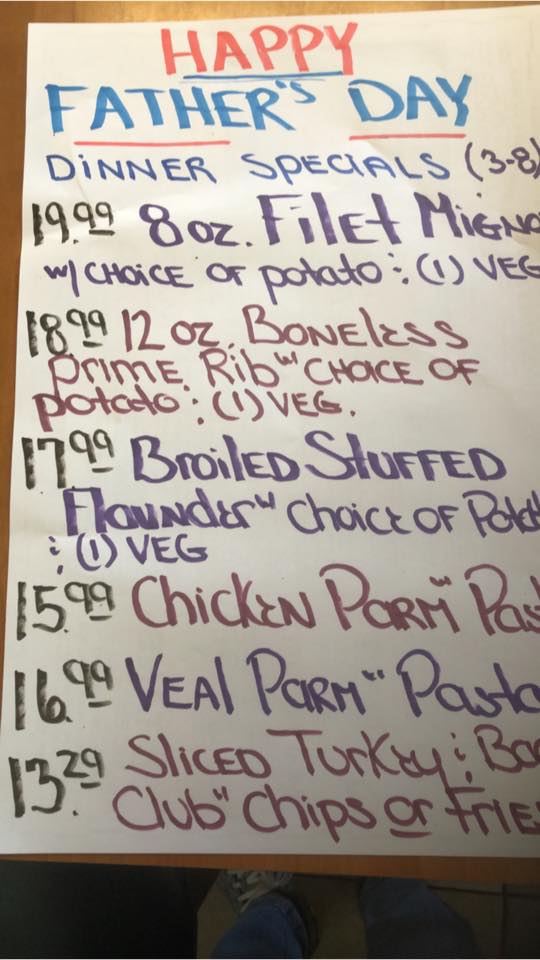 HAPPY
FATHER'S DAY
DINNER SPECIALS (3-8)
19.99 8 oz. Filet Migno
w/ CHOICE OF potato ; (1) VEG
18.99 12 oz. Boneless
prime Rib w/ CHOICE OF
potato ; (1) VEG.
17.99 Broiled Stuffed
Flounder w/ choice OF Potat
; (1) VEG
15.99 Chicken Parm w/ Pas
16.99 Veal Parm w/ Pasta
13.29 Sliced Turkey ; Bac
Club w/ chips or Frie